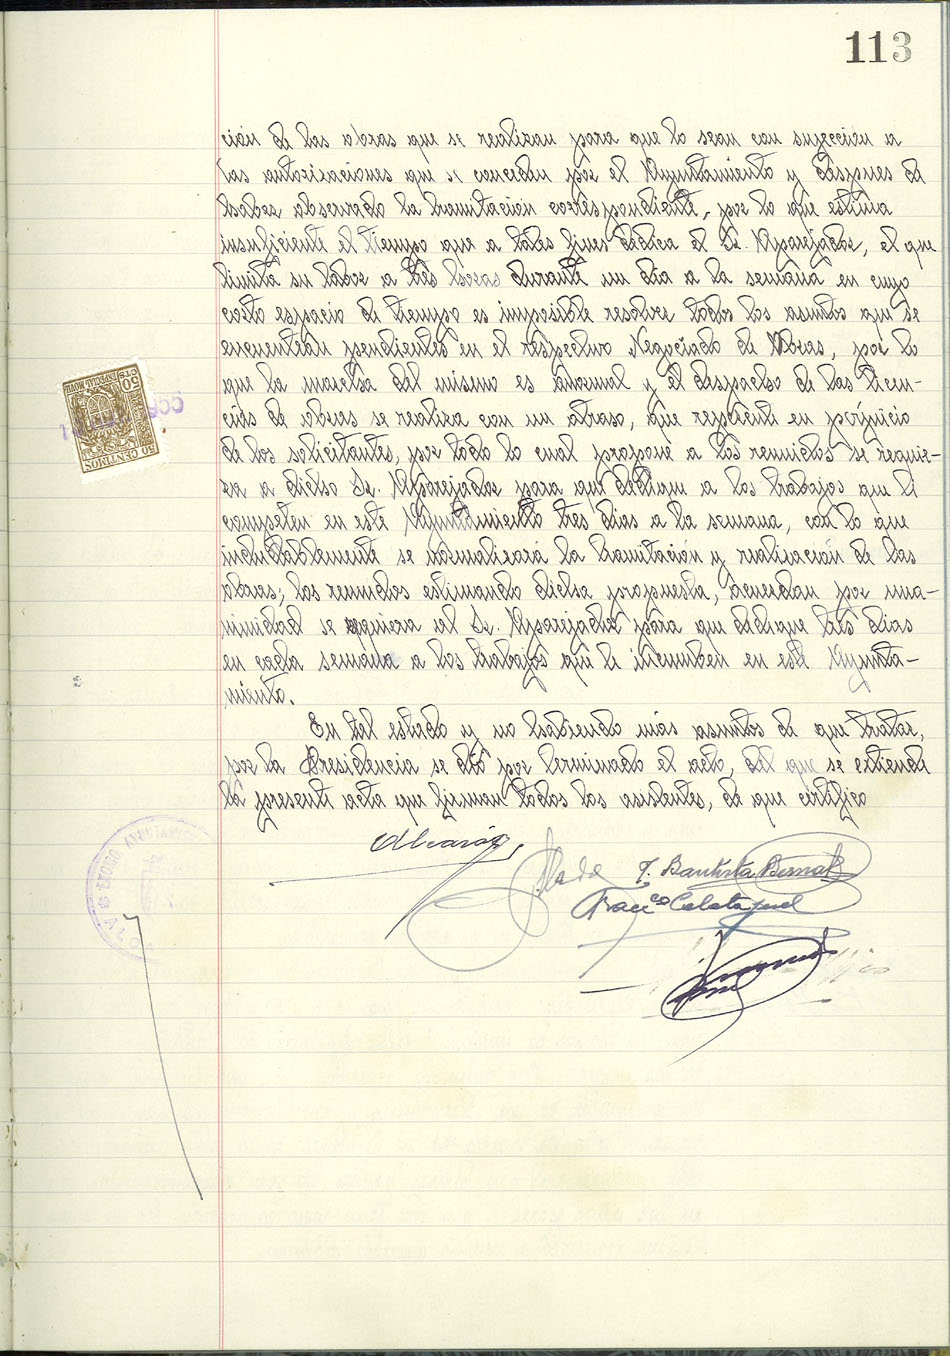 113
ción de las obras que se realizan para que lo sean con sujeccion a
las autorizaciones que se conceden por el Ayuntamiento y despues de
haber observado la tramitacion correspondiente, por lo que estima
insuficiente el tiempo que a tales fines dedica el Sr. Aparejador, el que
limita su labor a tres horas durante un dia a la semana en cuyo
corto espacio de tiempo es imposible resolver todos los asuntos que se
encuentran pendientes en el respectivo Negociado de Obras, por lo
que la marcha del mismo es anormal y el despacho de las licen-
cias de obras se realiza con un atraso, que repercute en perjuicio
de los solicitantes, por todo lo cual propone a los reunidos se requie-
ra a dicho Sr. Aparejador para que dedique a los trabajos que le
competen en este Ayuntamiento tres dias a la semana, con lo que
indudablemente se normalizará la tramitación y realización de las
obras; los reunidos estimando dicha propuesta, acuerdan por una-
nimidad se requiera al Sr. Aparejador para que dedique tres dias
en cada semana a los trabajos que le incumben en este Ayunta-
miento.
En tal estado y no habiendo más asuntos de que tratar,
por la Presidencia se dió por terminado el acto, del que se extiende
la presente acta que firman todos los asistentes, de que certifico
50 CENTIMOS
ESPECIAL MOVIL
50 CTS
Alvaró
J. Bautista Bernat
Franco Calatayud